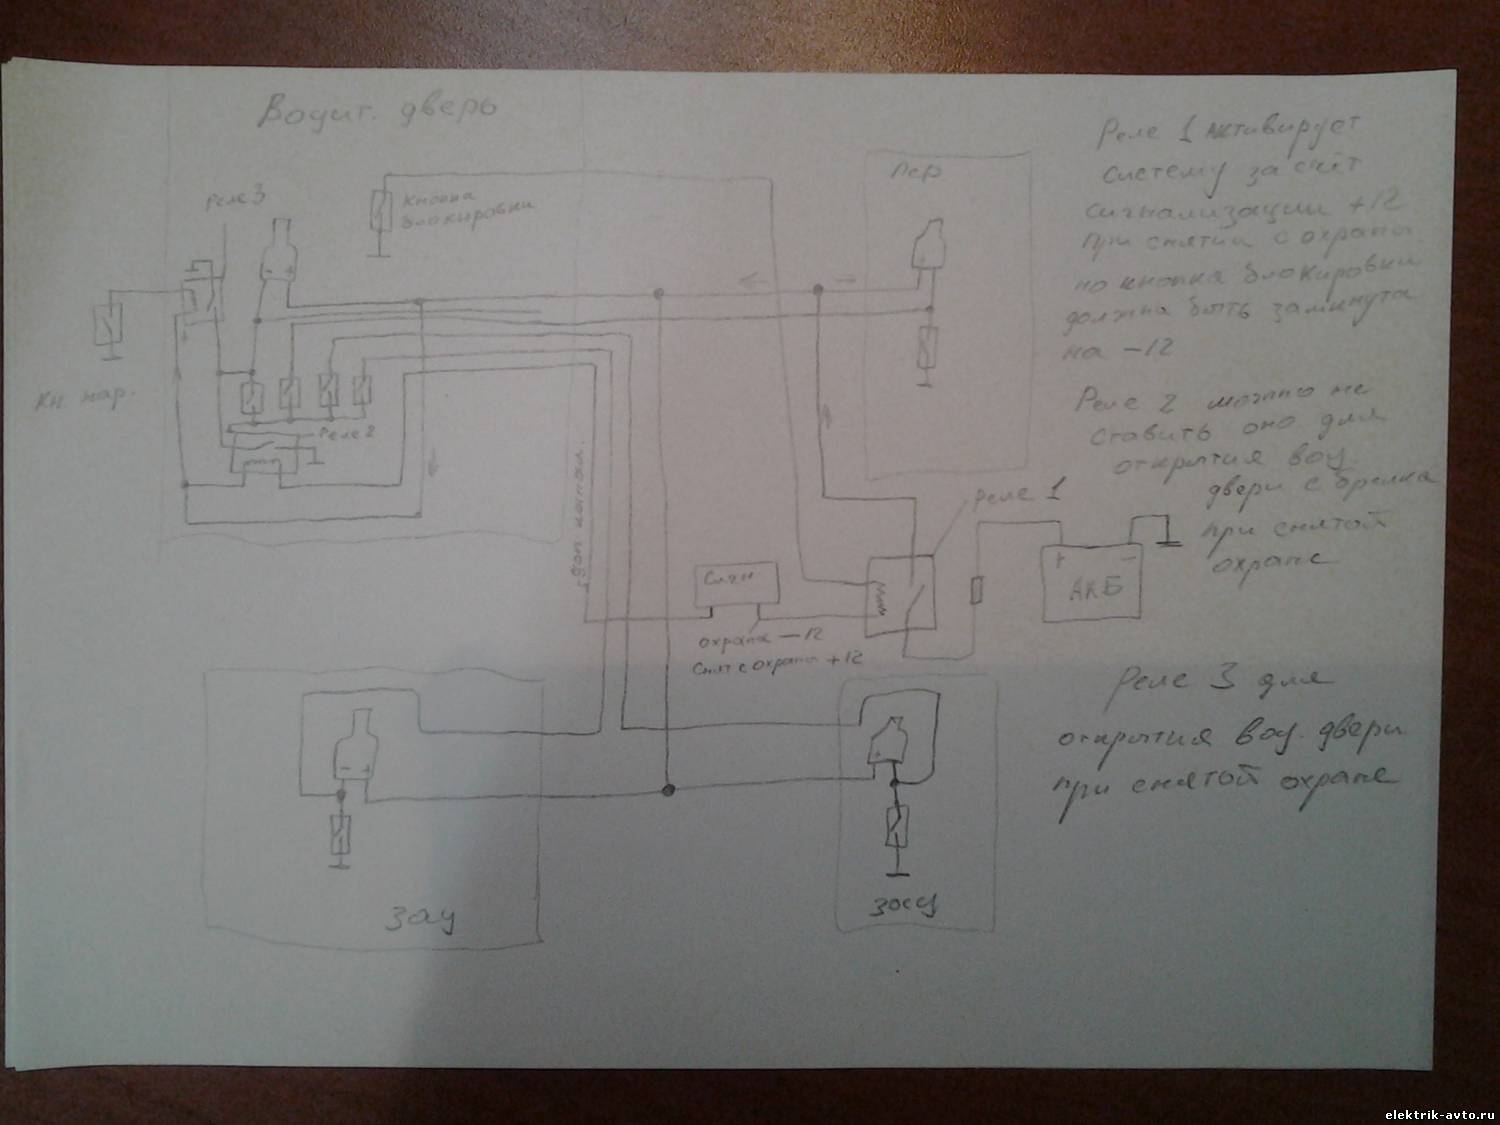 Водит. дверь
Реле 3
Кнопка
блокировки
Пер
Кн нар.
Реле 2
доп канал.
Сигн
охрана -12
Снят с охраны +12
Реле 1
+ -
АКБ
Реле 1 активирует
систему за счёт
сигнализации +12
при снятии с охраны
но кнопка блокировки
должна быть замкнута
на -12
Реле 2 можно не
ставить оно для
открытия вод.
двери с брелка
при снятой
охране
Реле 3 для
открытия вод. двери
при снятой охране
- +
+
- +
+
elektrik-avto.ru